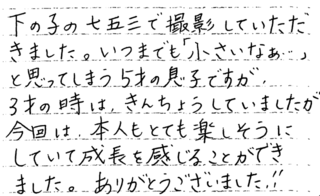 下の子の七五三で撮影していただ
きました。いつまでも「小さいなぁ…」
と思ってしまう5才の息子ですが、
3才の時は、きんちょうしていましたが
今回は、本人もとても楽しそうに
していて成長を感じることができ
ました。ありがとうございました!!